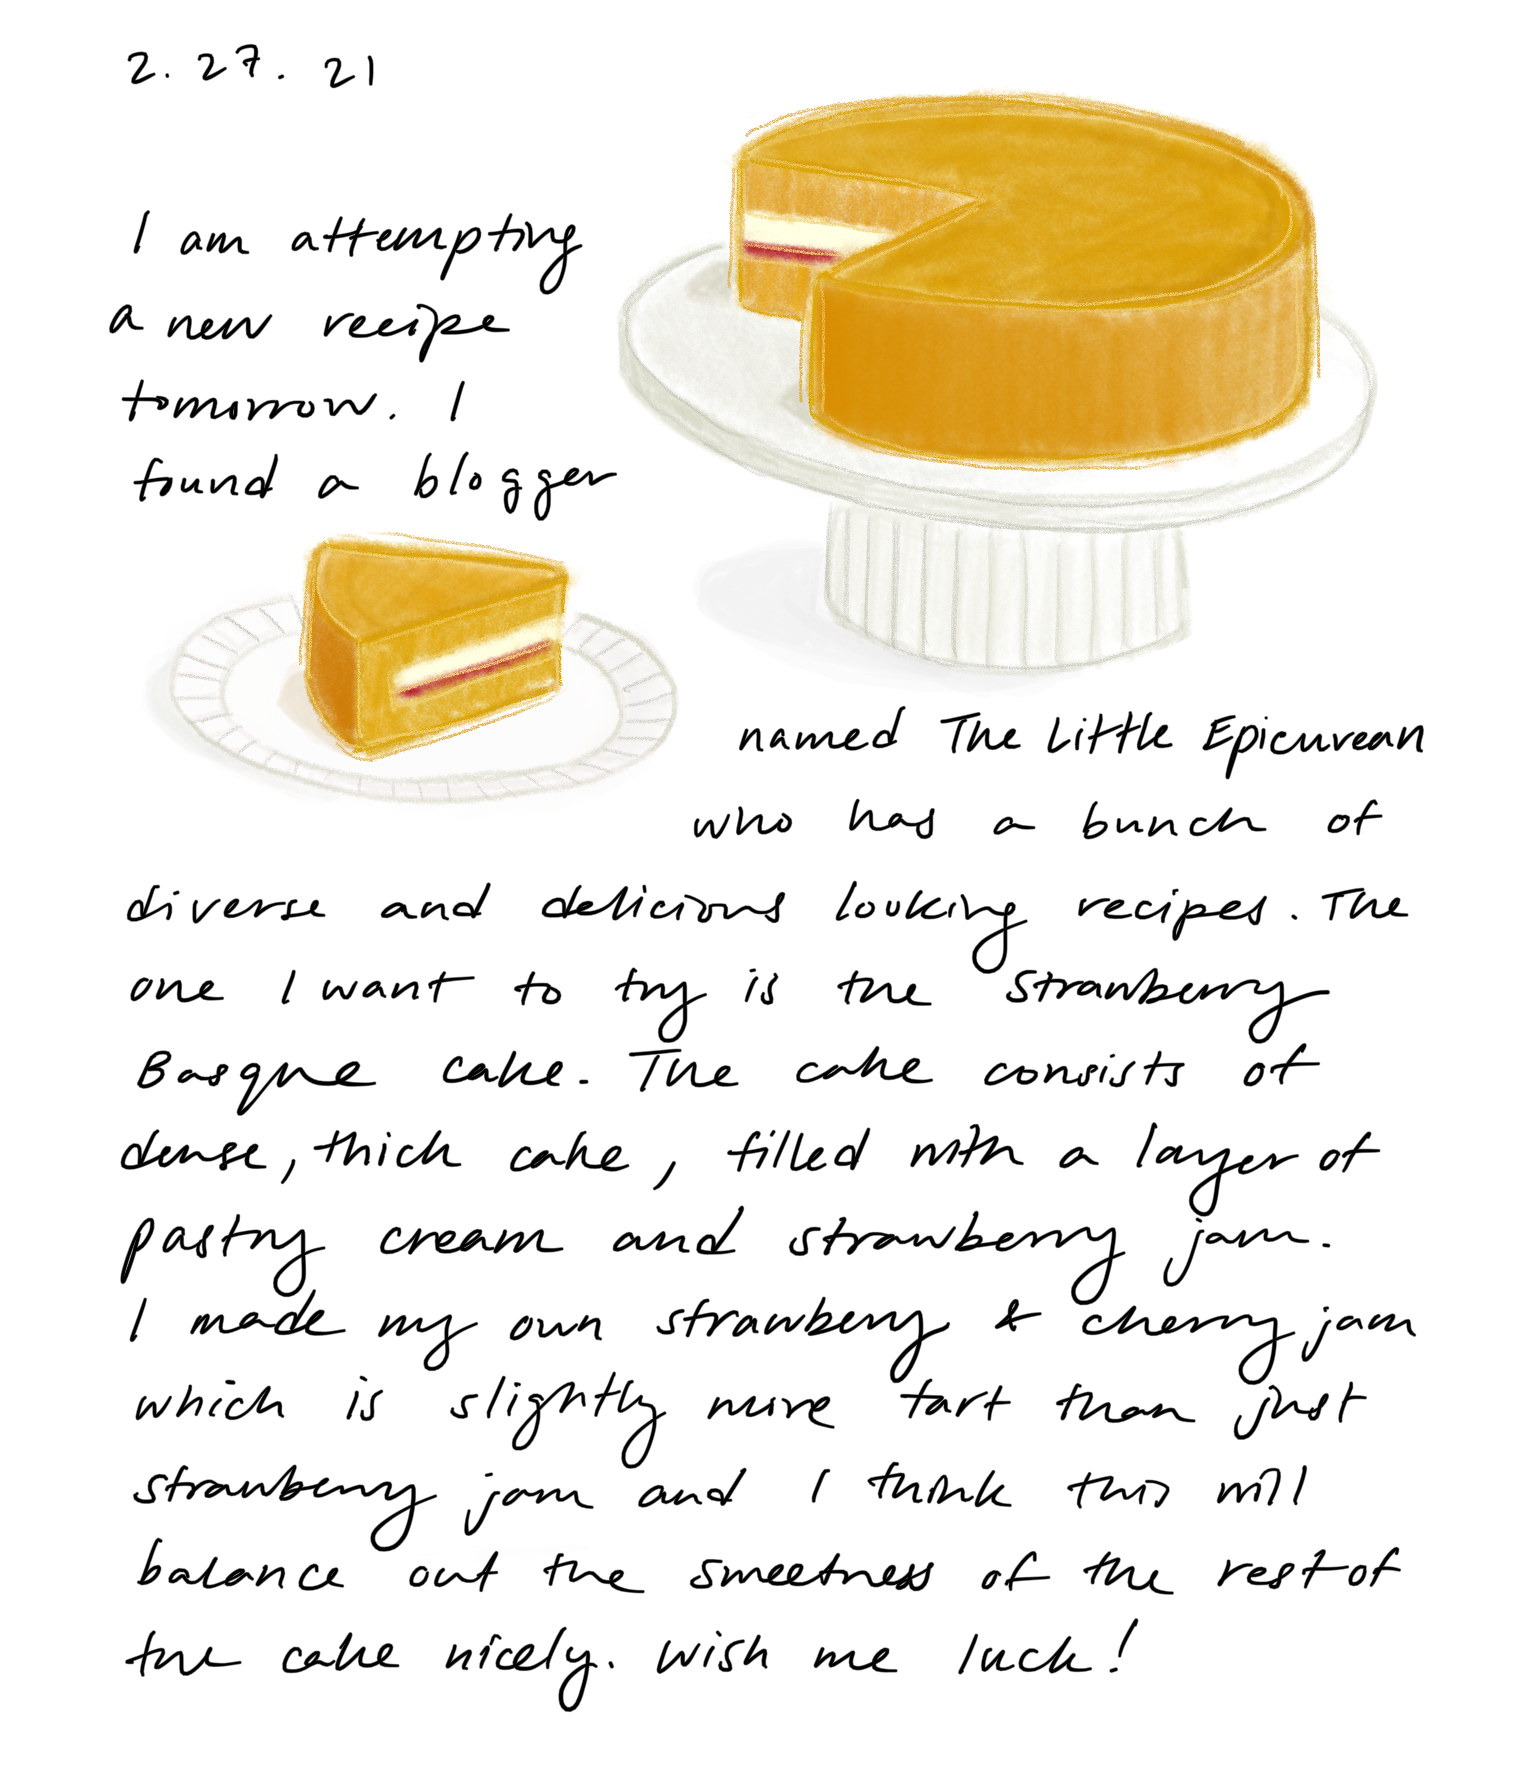 2. 27. 21
I am attempting
a new recipe
tomorrow. I
found a blogger
named The Little Epicurean
who has a bunch of
diverse and delicious looking recipes. The
one I want to try is the Strawberry
Basque cake. The cake consists of
dense, thick cake, filled with a layer of
pastry cream and strawberry jam.
I made my own strawberry & cherry jam
which is slightly more tart than just
strawberry jam and I think this will
balance out the sweetness of the rest of
the cake nicely. Wish me luck!